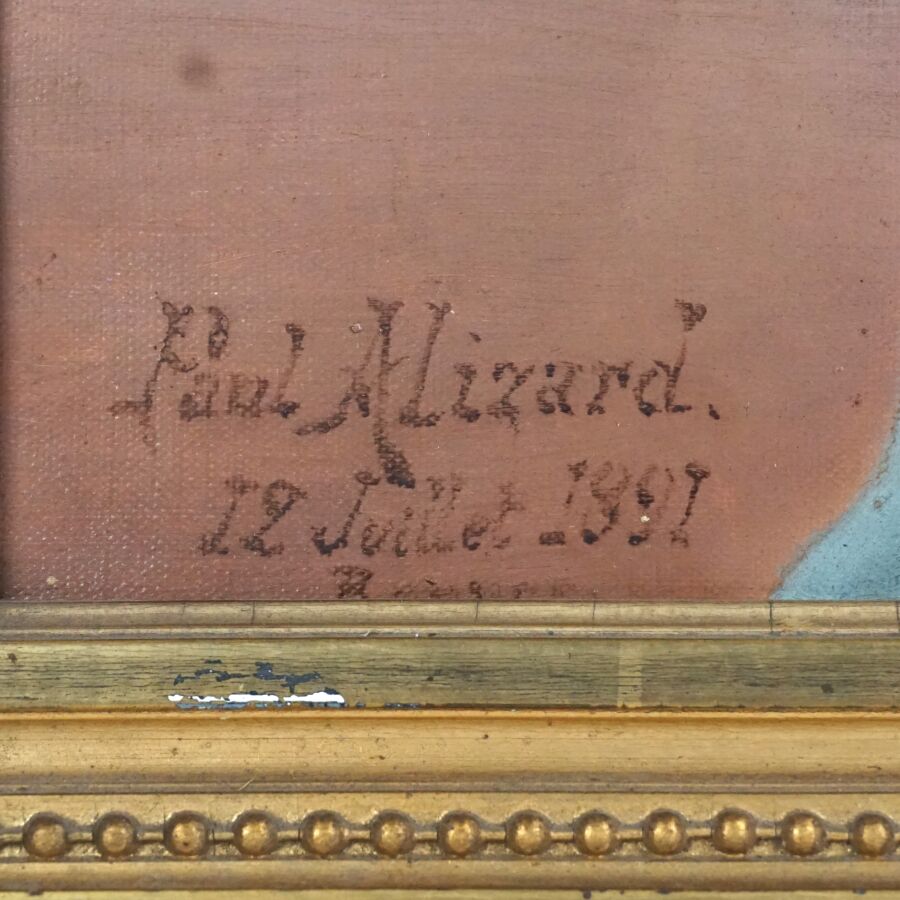 Paul Alizard.
12 Juillet 1891